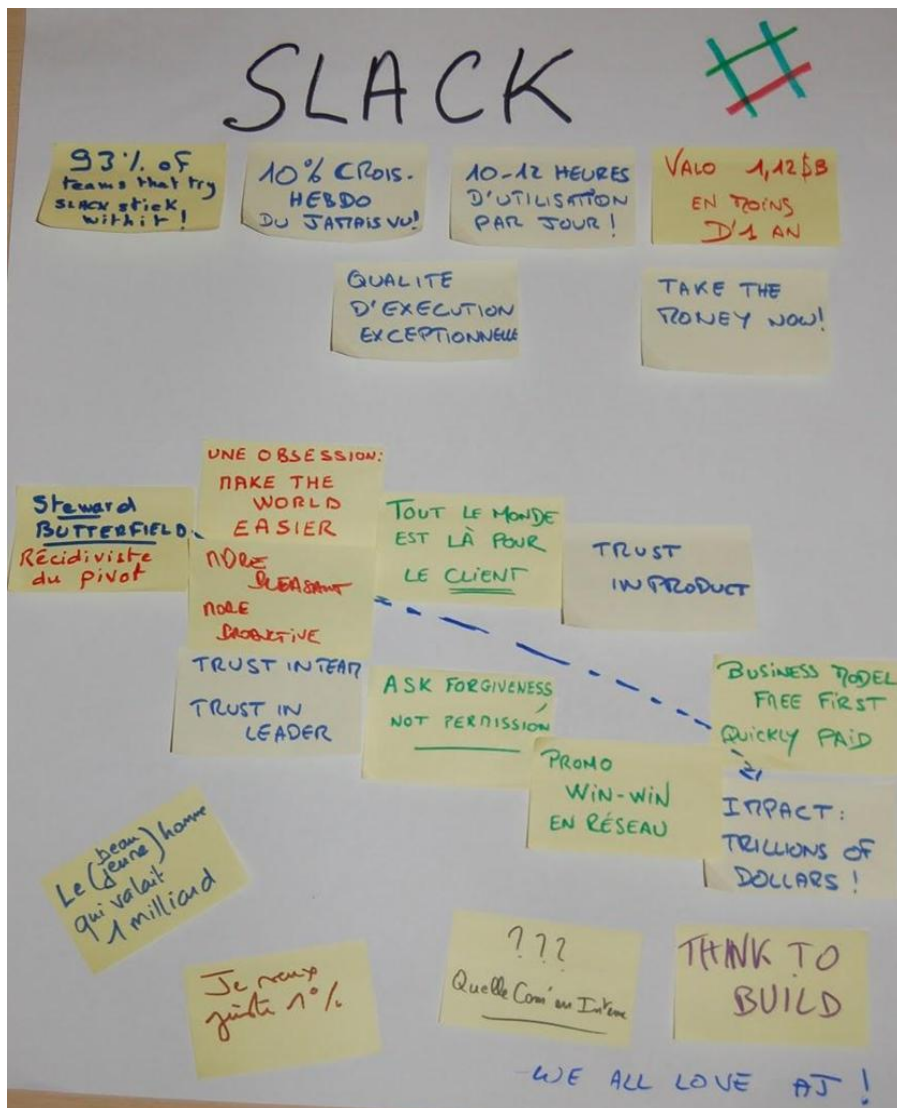 SLACK
93% of
teams that try
SLACK stick
with it!
10% CROIS-
HEBDO
DU JAMAIS VU!
10-12 HEURES
D'UTILISATION
PAR JOUR!
VALO 1,12$B
EN MOINS
D'1 AN
QUALITE
D'EXECUTION
EXCEPTIONNELLE
TAKE THE
MONEY NOW!
Steward
BUTTERFIELD
Récidiviste
du pivot
UNE OBSESSION:
MAKE THE
WORLD
EASIER
MORE
PLEASANT
MORE
PRODUCTIVE
TRUST IN TEAM
TRUST IN
LEADER
TOUT LE MONDE
EST LÀ POUR
LE CLIENT
ASK FORGIVENESS
NOT PERMISSION
TRUST
IN PRODUCT
PROMO
WIN-WIN
EN RÉSEAU
BUSINESS MODEL
FREE FIRST
QUICKLY PAID
IMPACT:
TRILLIONS OF
DOLLARS!
beau
Le (jeune) homme
qui valait
1 milliard
Je veux
juste 1%
???
Quelle Com' en Interne
THINK TO
BUILD
WE ALL LOVE AJ!